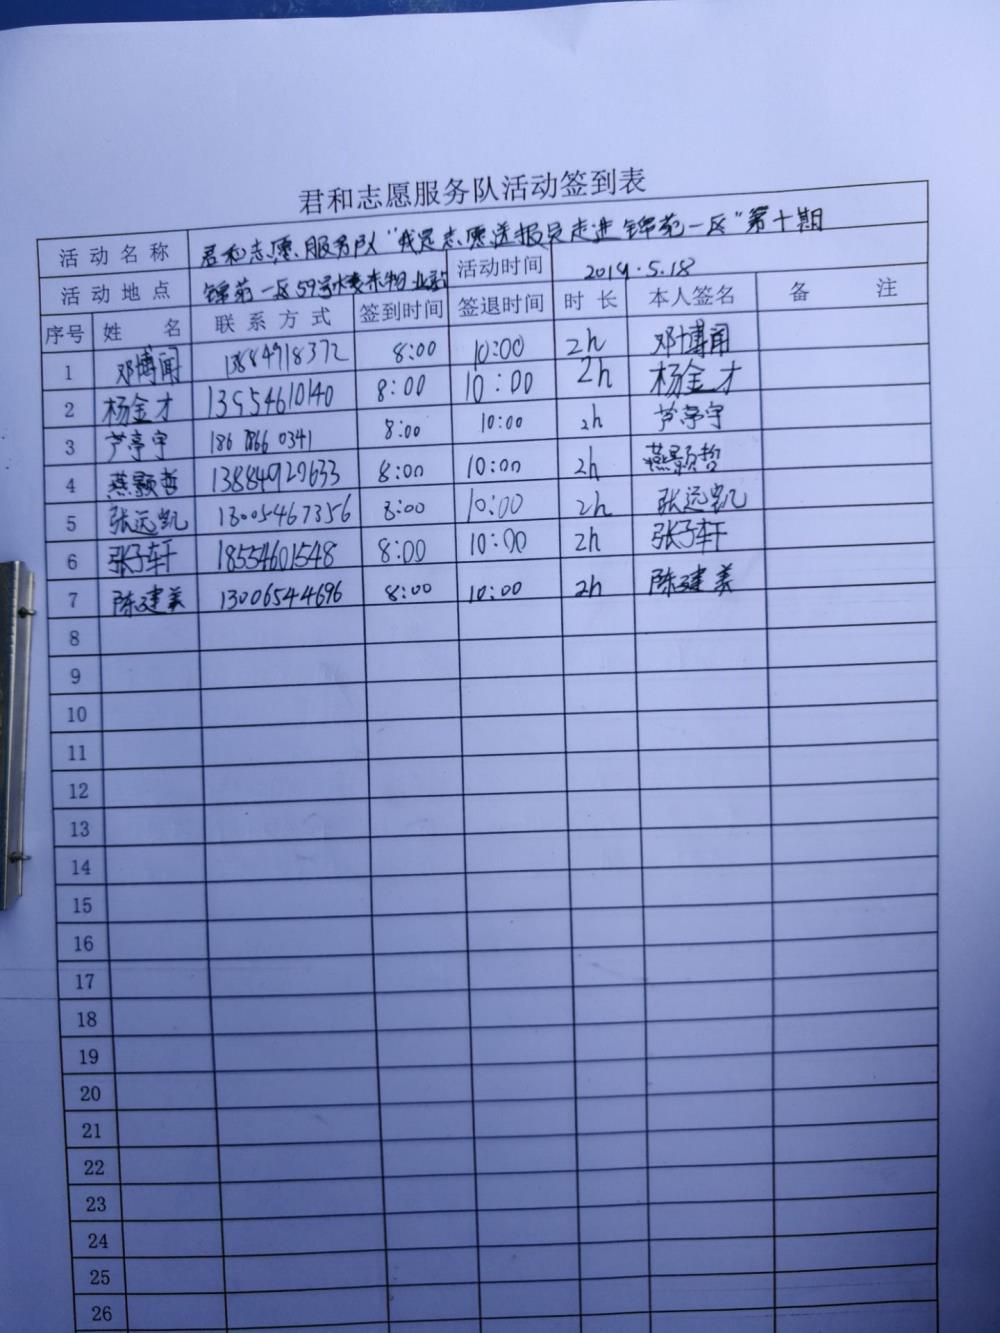 君和志愿服务队活动签到表
活动名称 君和志愿服务队"我是志愿送报员走进锦苑一区"第十期
活动地点 锦苑一区59号 物业 活动时间 2019.5.18
序号 姓名 联系方式 签到时间 签退时间 时长 本人签名 备注
1 邓博闻 13884918372 8:00 10:00 2h 邓博闻
2 杨金才 13554610140 8:00 10:00 2h 杨金才
3 芦亭宇 186 7866 0341 8:00 10:00 2h 芦亭宇
4 燕颢哲 13884929633 8:00 10:00 2h 燕颢哲
5 张远凯 13005467356 8:00 10:00 2h 张远凯
6 张子轩 18554601548 8:00 10:00 2h 张子轩
7 陈建美 13006544696 8:00 10:00 2h 陈建美
8
9
10
11
12
13
14
15
16
17
18
19
20
21
22
23
24
25
26